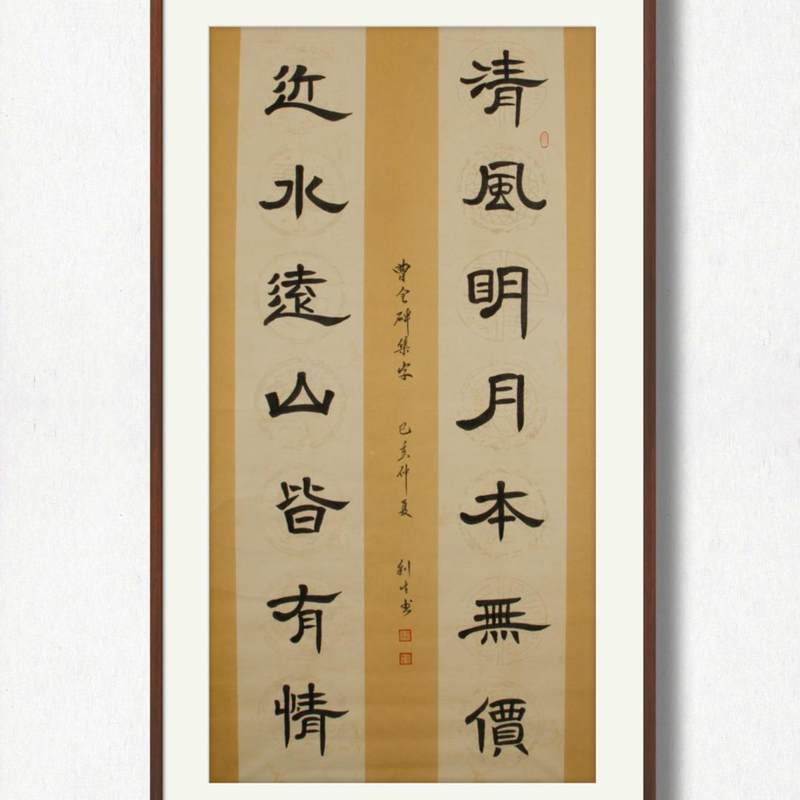 清風明月本無價
曹全碑集字 己亥仲夏 利生書
近水遠山皆有情